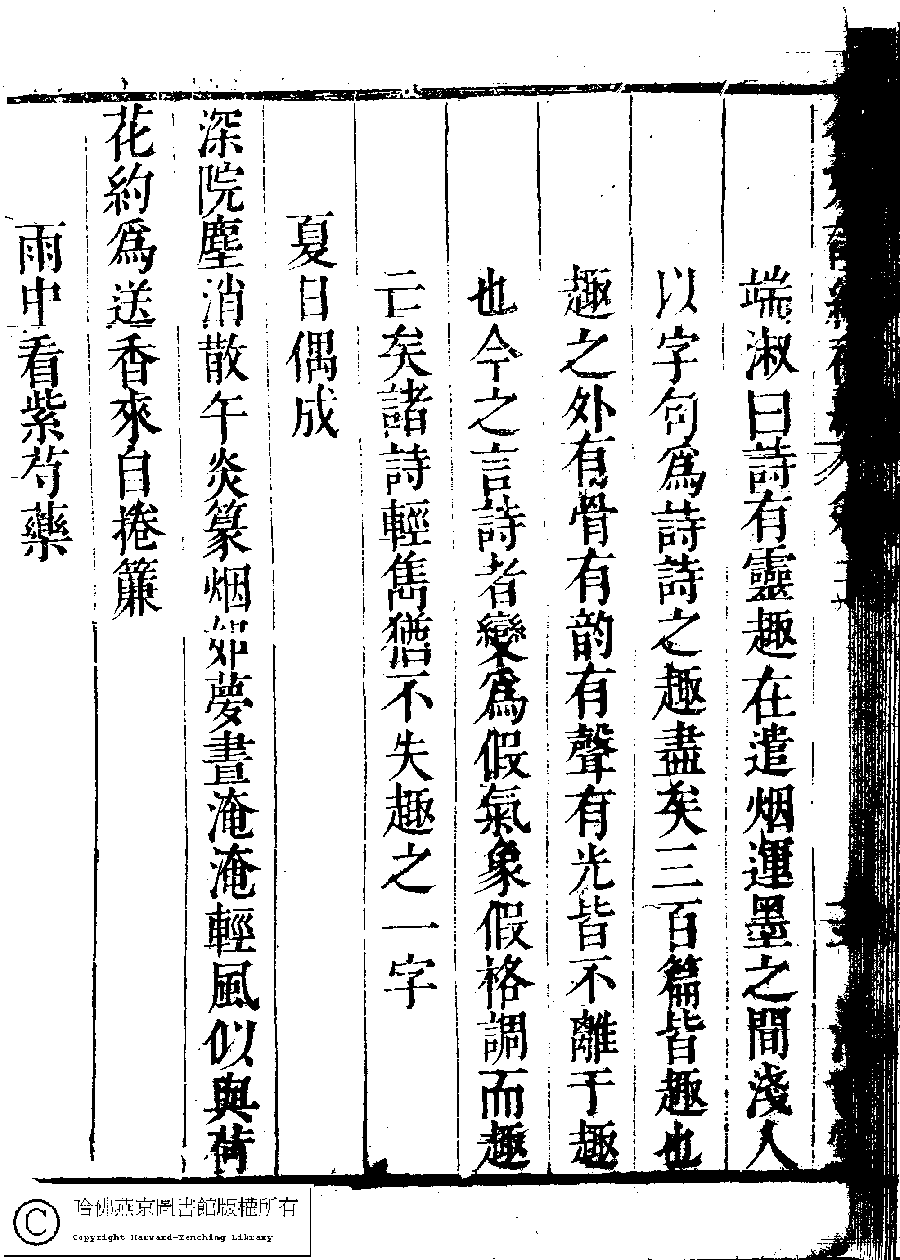 端淑曰詩有靈趣在遣烟運墨之間淺人
以字句爲詩詩之趣盡矣三百篇皆趣也
趣之外有骨有韵有聲有光皆不離于趣
也今之言詩者變爲假氣象假格調而趣
亡矣諸詩輕雋猶不失趣之一字
夏日偶成
深院塵消散午炎篆烟如夢晝淹淹輕風似與荷
花約爲送香來自捲簾
雨中看紫芍藥
哈佛燕京圖書館版權所有
Copyright Harvard-Yenching Library